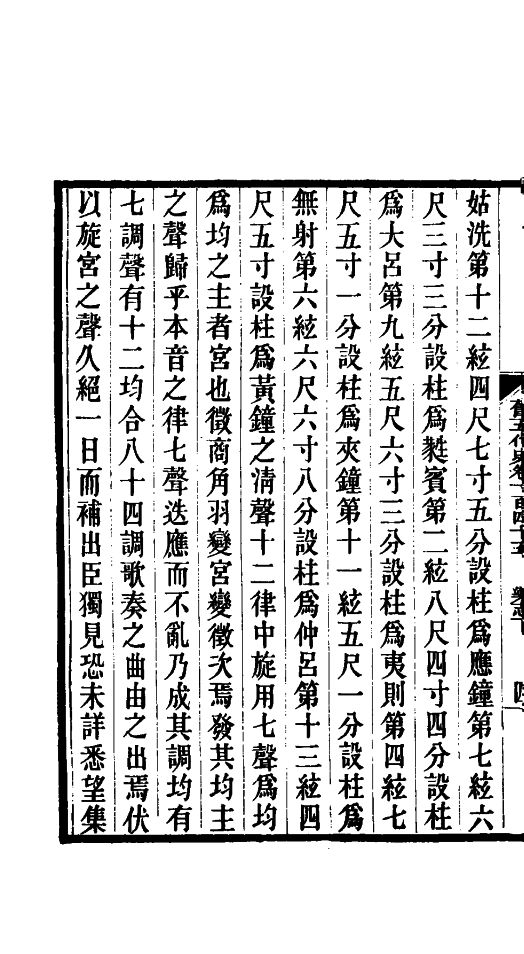 姑洗第十二絃四尺七寸五分設柱爲應鐘第七絃六
尺三寸三分設柱爲蕤賓第二絃八尺四寸四分設柱
爲大呂第九絃五尺六寸三分設柱爲夷則第四絃七
尺五寸一分設柱爲夾鐘第十一絃五尺一分設柱爲
無射第六絃六尺六寸八分設柱爲仲呂第十三絃四
尺五寸設柱爲黃鐘之淸聲十二律中旋用七聲爲均
爲均之主者宮也徵商角羽變宮變徵次焉發其均主
之聲歸乎本音之律七聲迭應而不亂乃成其調均有
七調聲有十二均合八十四調歌奏之曲由之出焉伏
以旋宮之聲久絕一日而補出臣獨見恐未詳悉望集